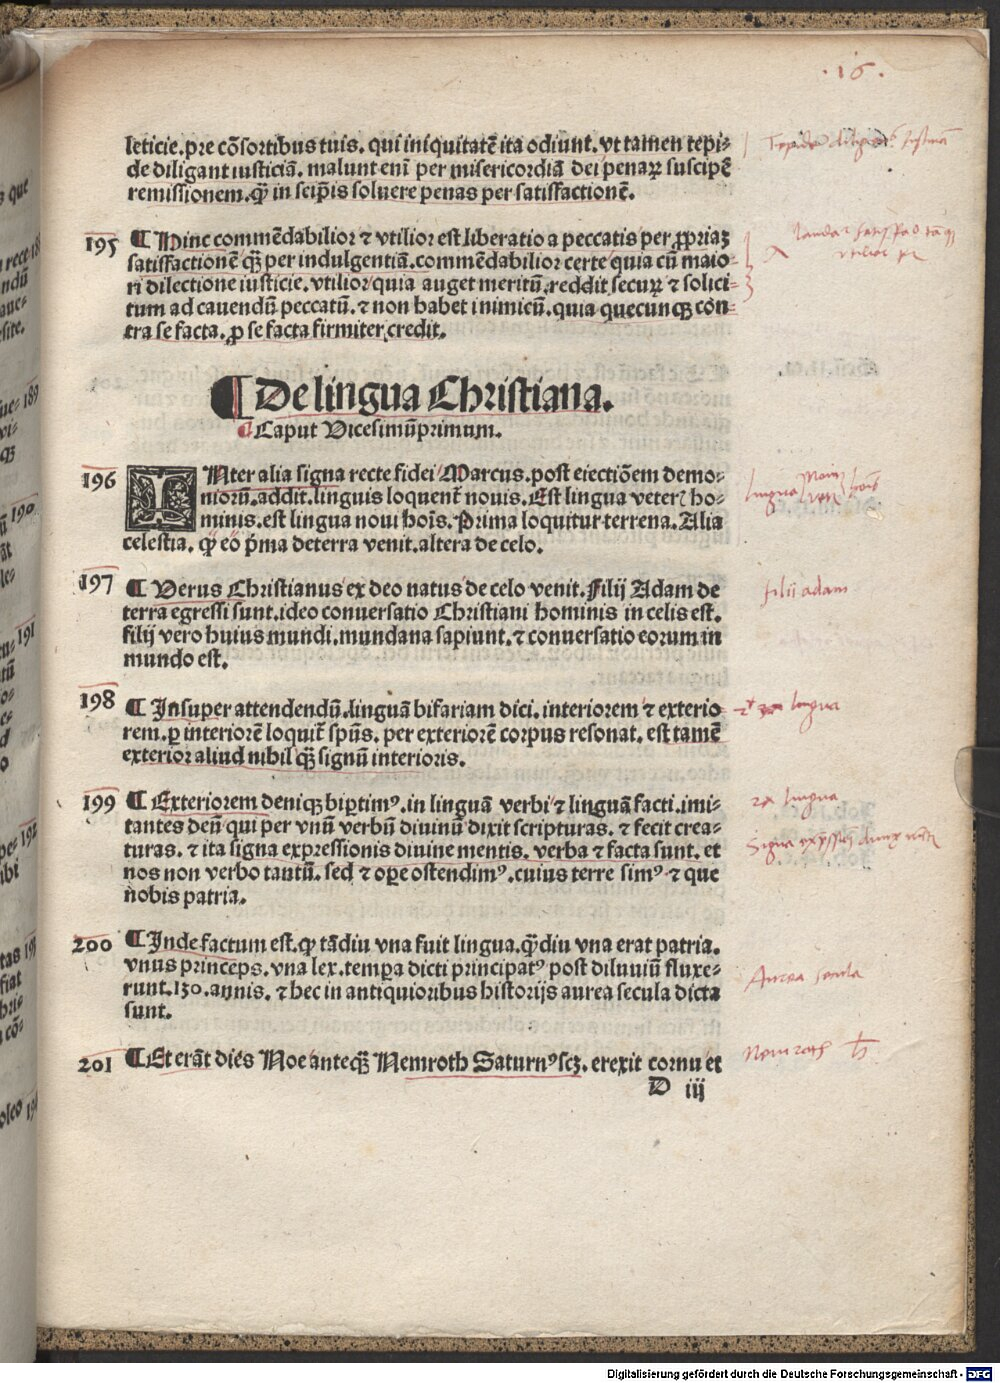 .16.
leticie. pre cõsortibus tuis. qui iniquitatẽ ita odiunt. vt tamen tepi⸗
de diligant iusticiã. malunt eni᷒ per misericordiã dei penaꝝ suscipẽ
remissionem. ꝙ̃ in seip̃is soluere penas per satisfactionẽ.
195 ¶ Hinc commẽdabilior ⁊ vtilior est liberatio a peccatis per ꝓpriaz
satisfactionẽ qꝫ per indulgentiã. commẽdabilior certe quia cũ maio⸗
ri dilectione iusticie. vtilior quia auget meritũ. reddit securꝝ ⁊ solici⸗
tum ad cauendũ peccatũ. ⁊ non habet inimicũ. quia quecunqꝫ con⸗
tra se facta. ꝓ se facta firmiter credit.
¶ De lingua Christiana.
¶ Caput Vicesimũprimum.
196 INter alia signa recte fidei Marcus. post eiectiõem demo⸗
niorũ. addit. linguis loquent̃ nouis. Est lingua veter̃ ho⸗
minis. est lingua noui hoĩs. Prima loquitur terrena. Alia
celestia. ꝙ eo p̃ma deterra venit. altera de celo.
197 ¶ Verus Christianus ex deo natus de celo venit. Filij Adam de
terra egressi sunt. ideo conuersatio Christiani hominis in celis est.
filij vero huius mundi. mundana sapiunt. ⁊ conuersatio eorum in
mundo est.
198 ¶ Insuper attendendũ. linguã bifariam dici. interiorem ⁊ exterio
rem. ꝑ interiorẽ loquit̃ spũs. per exteriorẽ corpus resonat. est tamẽ
exterior aliud nihil qꝫ̃ signũ interioris.
199 ¶ Exteriorem deniqꝫ bip̃timꝰ. in linguã verbi ⁊ linguã facti. imi⸗
tantes deũ qui per vnũ verbũ diuinũ dixit scripturas. ⁊ fecit crea⸗
turas. ⁊ ita signa expressionis diuine mentis. verba ⁊ facta sunt. et
nos non verbo tantũ. sed ⁊ oꝑe ostendimꝰ. cuius terre simꝰ ⁊ que
nobis patria.
200 ¶ Inde factum est. ꝙ tãdiu vna fuit lingua. ꝙ̃diu vna erat patria.
vnus princeps. vna lex. temꝑa dicti principatꝰ post diluuiũ fluxe⸗
runt. 130. annis. ⁊ hec in antiquioribus historijs aurea secula dicta
sunt.
201 ¶ Et erãt dies Noe anteqꝫ̃ Nemroth Saturnꝰ scꝫ. erexit cornu et
D iij
filii adam
lingua
2a lingua
Aurea secula
Nemroth
Digitalisierung gefördert durch die Deutsche Forschungsgemeinschaft - DFG